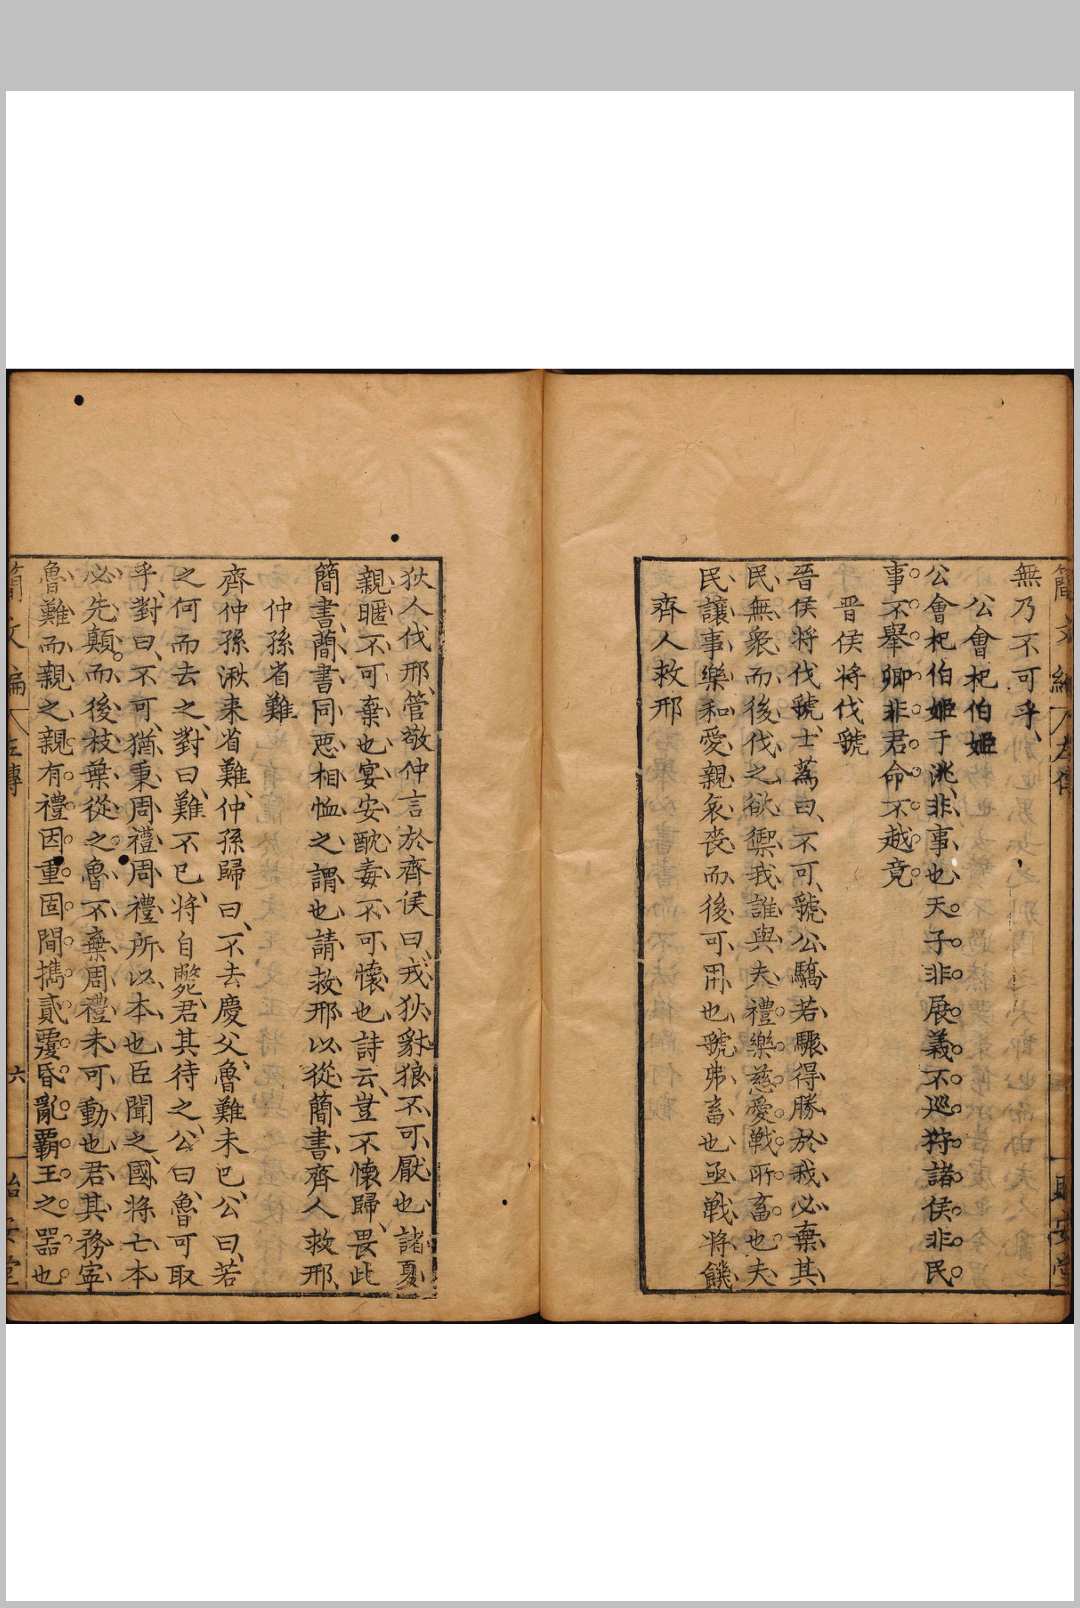 無乃不可乎
公會杞伯姬
公會杞伯姬于洮非事也天子非展義不巡狩諸侯非民
事不舉卿非君命不越竟
晉侯將伐虢
晉侯將伐虢士蔿曰不可虢公驕若驟得勝於我必棄其
民無衆而後伐之欲禦我誰與夫禮樂慈愛戰所畜也夫
民讓事樂和愛親哀喪而後可用也虢弗畜也亟戰將饑
齊人救邢
狄人伐邢管敬仲言於齊侯曰戎狄豺狼不可厭也諸夏
親暱不可棄也宴安酖毒不可懷也詩云豈不懷歸畏此
簡書簡書同惡相恤之謂也請救邢以從簡書齊人救邢
仲孫省難
齊仲孫湫来省難仲孫歸曰不去慶父魯難未已公曰若
之何而去之對曰難不已將自斃君其待之公曰魯可取
乎對曰不可猶秉周禮周禮所以本也臣聞之國將亡本
必先顛而後枝葉從之魯不棄周禮未可動也君其務寧
魯難而親之親有禮因重固間攜貳覆昏亂霸王之器也
簡文編 左傳 六